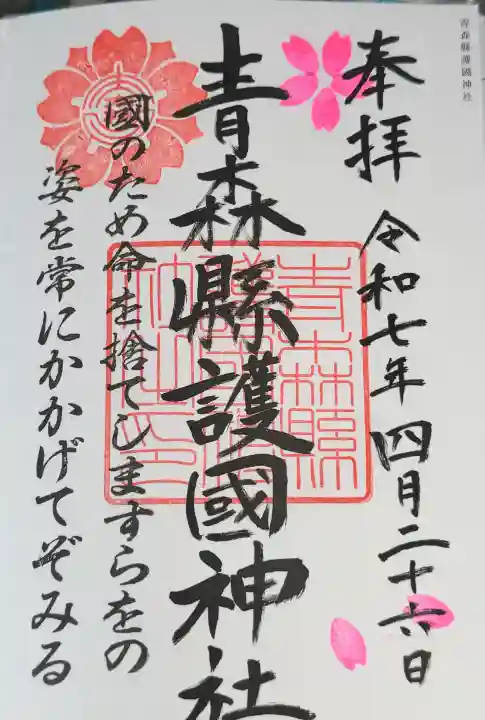 青森縣護國神社
奉拝 令和七年四月二十六日
青森縣護國神社
國のため命を捨てしますらをの
姿を常にかかげてぞみる
青森縣
護國神
社之印